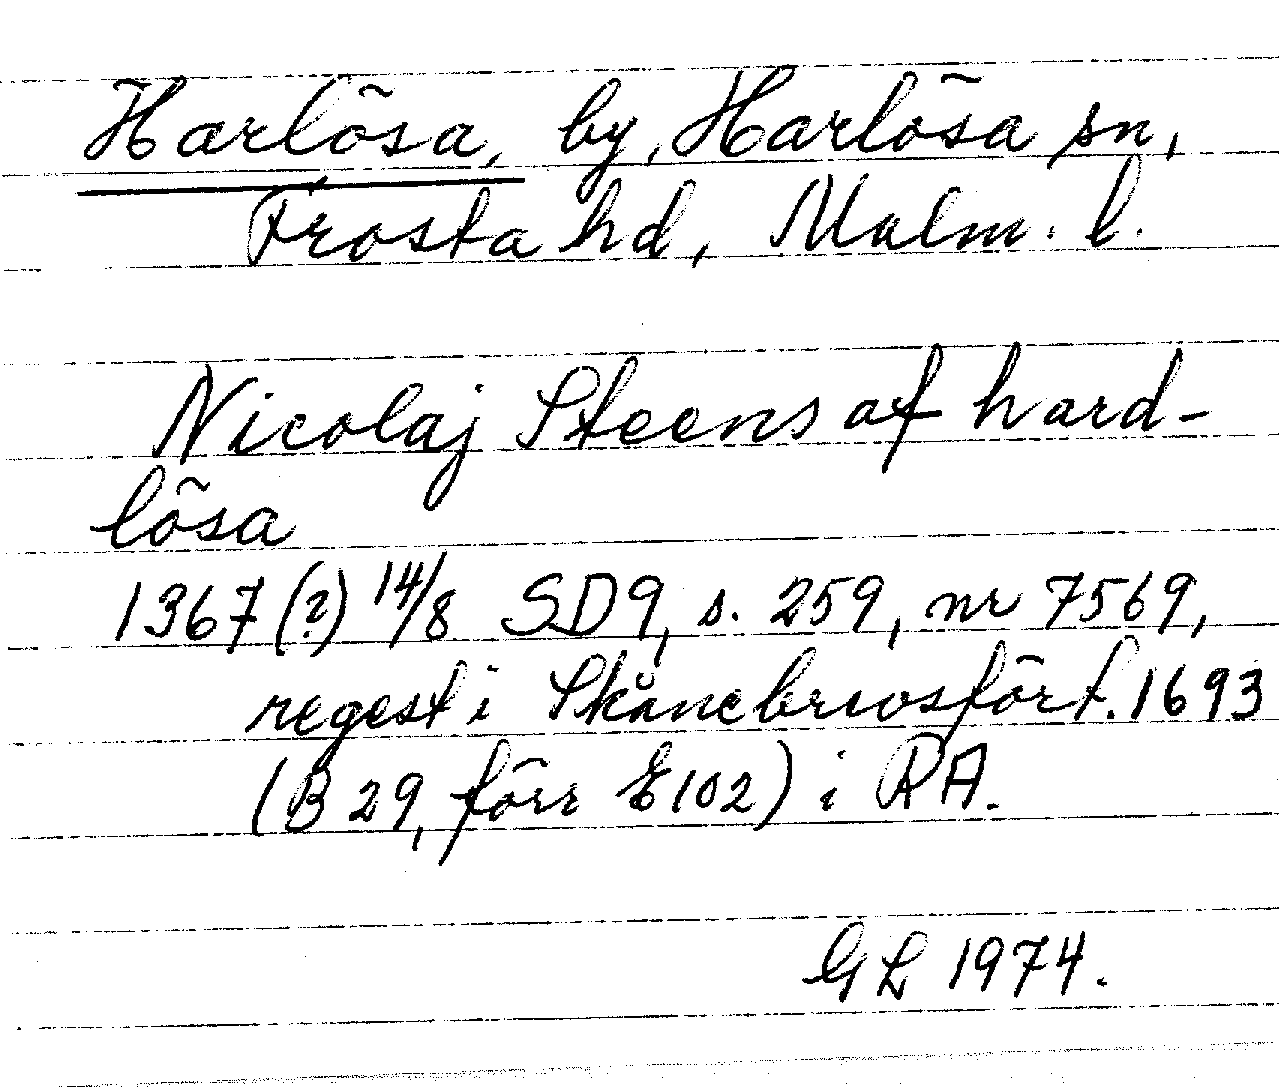 Harlösa, by, Harlösa sn,
Frosta hd, Malm. l.
Nicolaj Steens af hard-
lösa
1367 (?) 14/8 SD9, s. 259, nr 7569,
regest i Skånebrevsfört. 1693
(B 29, förr E102) i RA.
GL 1974.